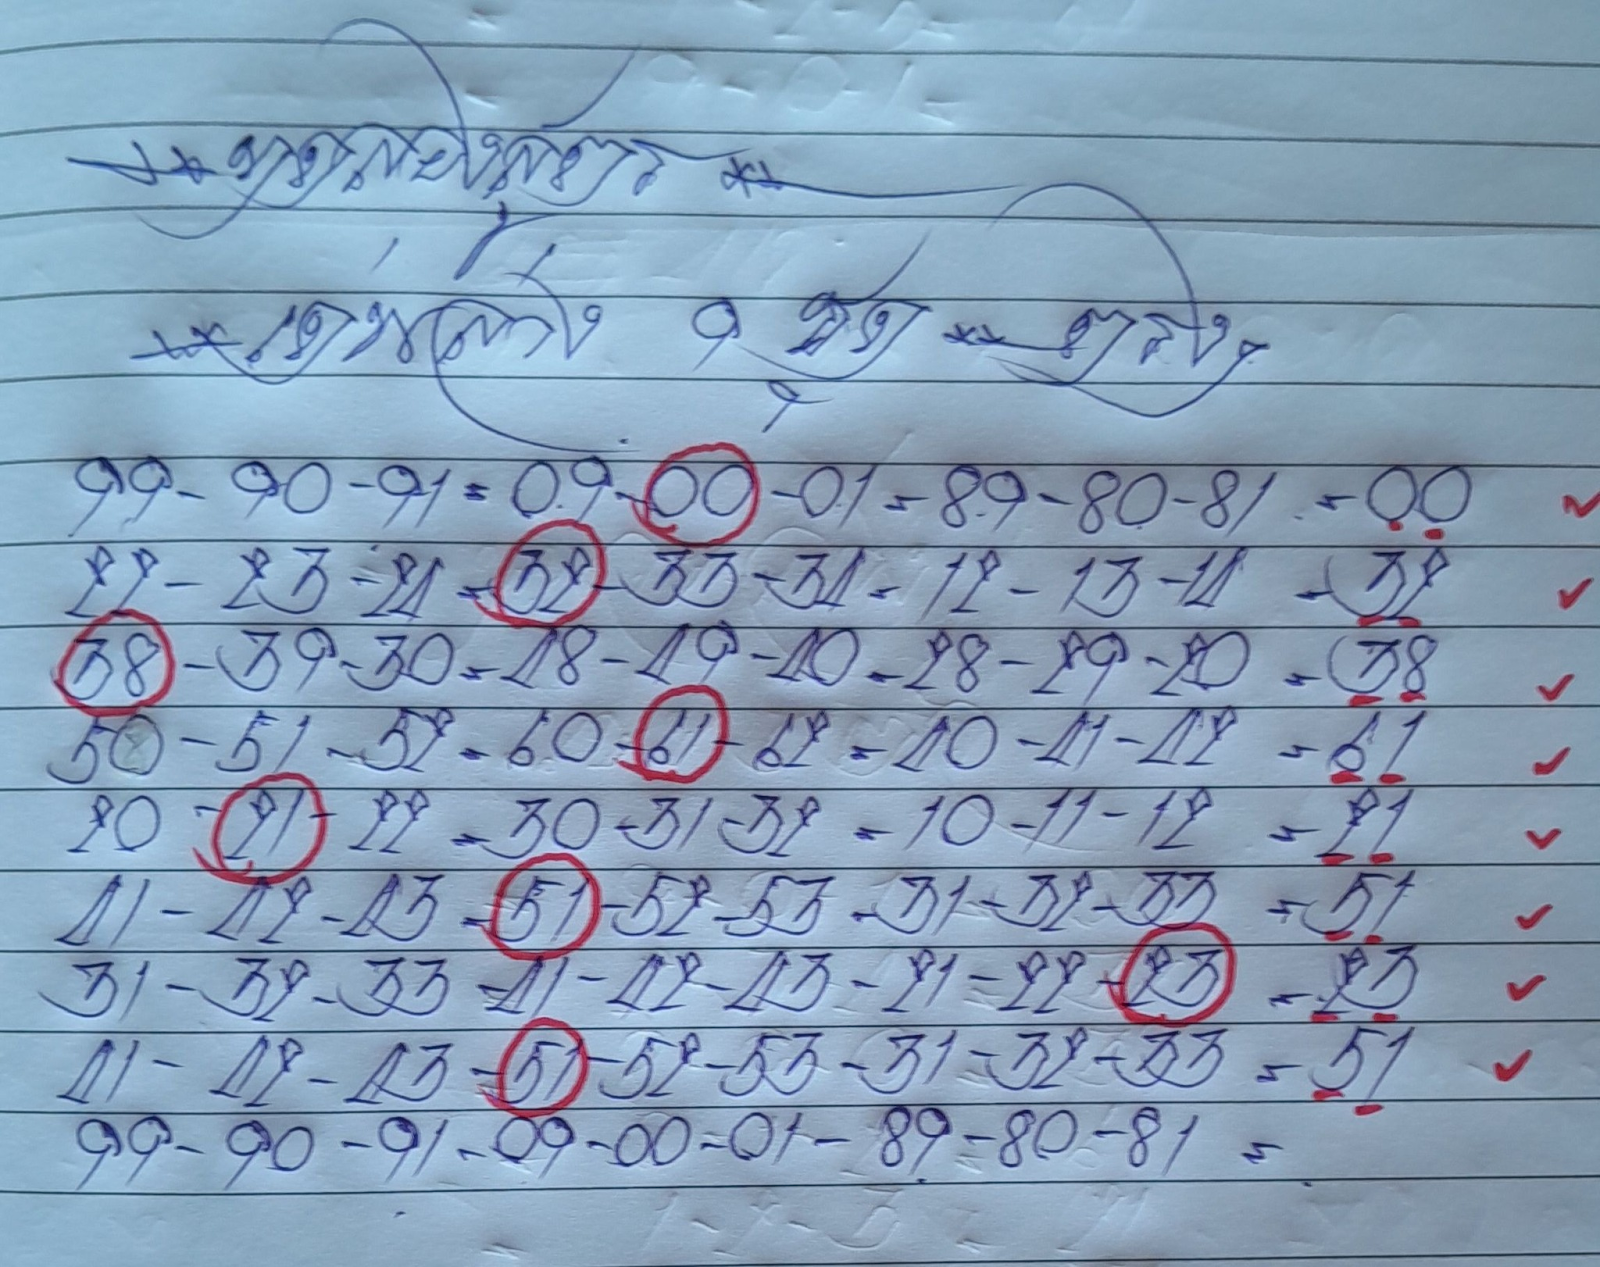 99 - 90 - 91 = 09 - 00 - 01 = 89 - 80 - 81 = 00
22 - 23 - 24 = 32 - 33 - 34 = 12 - 13 - 14 = 32
38 - 39 - 30 = 48 - 49 - 40 = 28 - 29 - 20 = 38
50 - 51 - 52 = 60 - 61 - 62 = 40 - 41 - 42 = 61
20 - 21 - 22 = 30 - 31 - 32 = 10 - 11 - 12 = 21
41 - 42 - 43 = 51 - 52 - 53 = 31 - 32 - 33 = 51
31 - 32 - 33 = 41 - 42 - 43 - 21 - 22 - 23 = 23
41 - 42 - 43 = 51 - 52 - 53 - 31 - 32 - 33 = 51
99 - 90 - 91 - 09 - 00 - 01 - 89 - 80 - 81 =